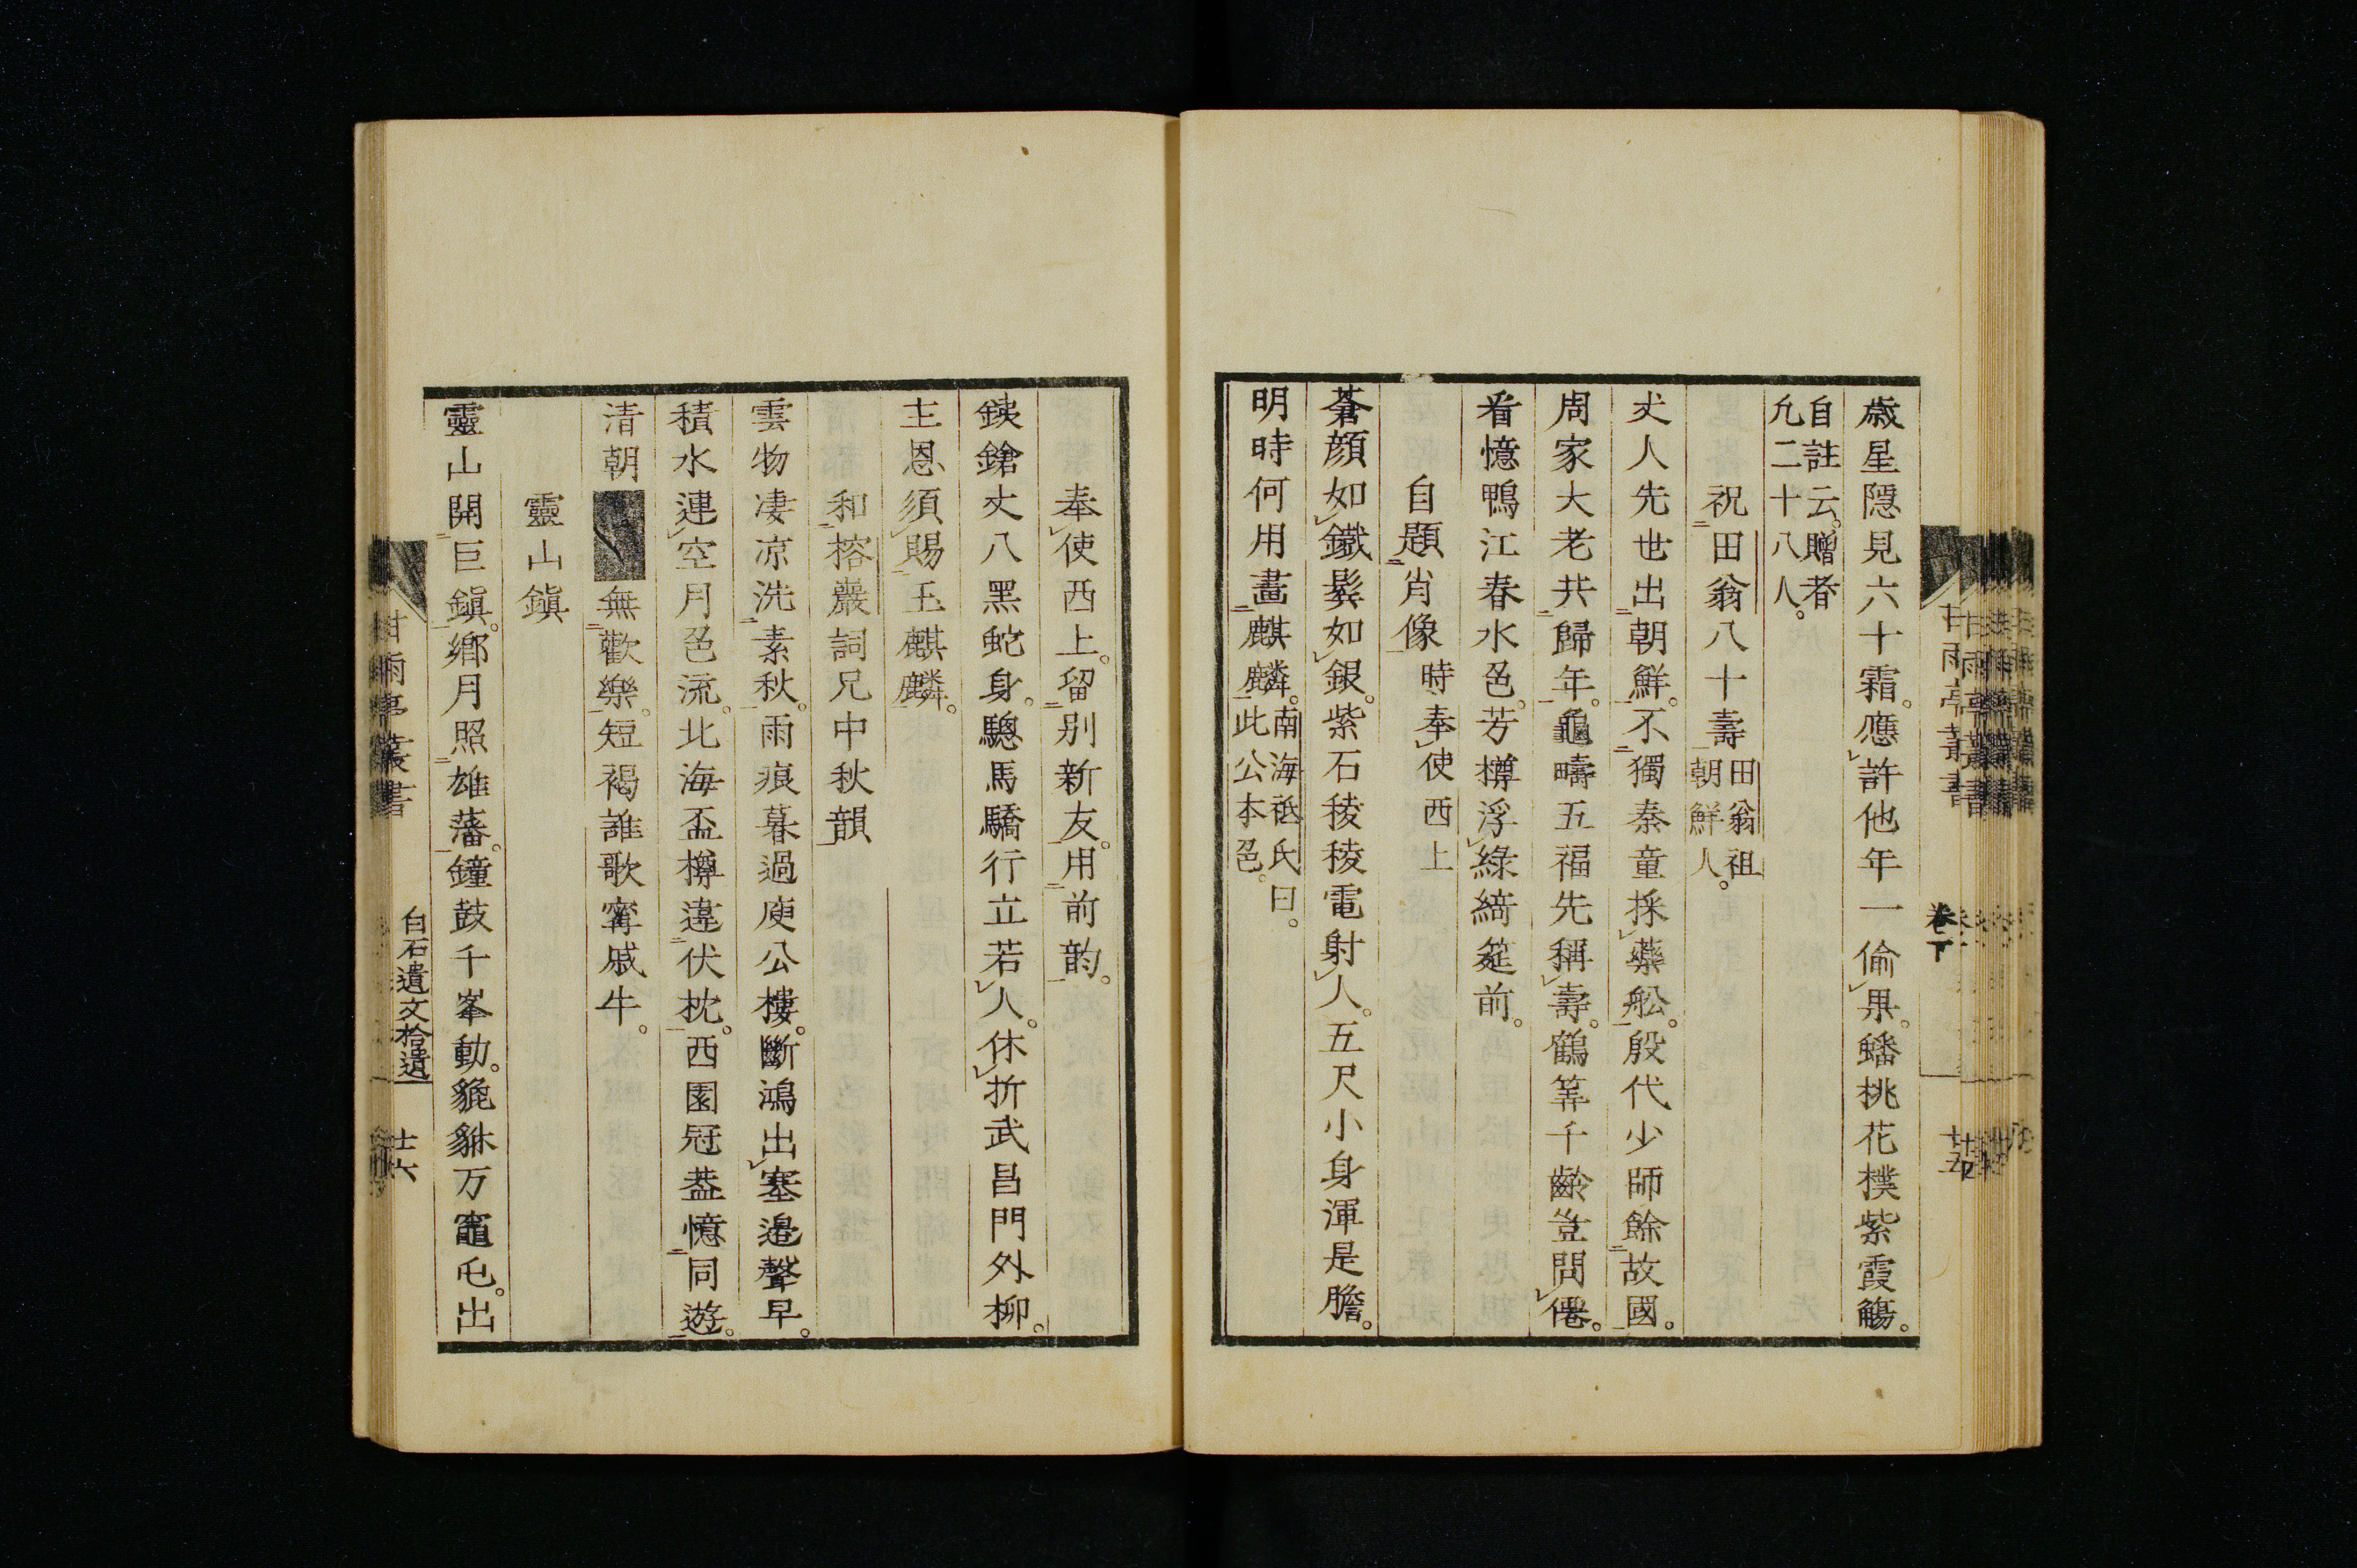 歳星隱見六十霜。應許他年一偷果。蟠桃花樸紫霞觴。
自註云。贈者
九二十八人。
祝田翁八十壽 田翁祖
朝鮮人。
丈人先世出朝鮮。不獨秦童採藥舩。殷代少師餘故國。
周家大老共歸年。龜疇五福先稱壽。鶴筭千齡豈問僊。
看憶鴨江春水色。芳樽浮綠綺筵前。
自題肖像 時奉使西上
蒼顔如鐵鬂如銀。紫石稜稜電射人。五尺小身渾是膽。
明時何用畫麒麟。南海祗氏曰。
此公本色。
奉使西上。留別新友。用前韵。
銕鎗丈八黑蛇身。驄馬驕行立若人。休折武昌門外柳。
主恩須賜玉麒麟。
和榕巖詞兄中秋韻
雲物凄凉洗素秋。雨痕暮過庾公樓。斷鴻出塞邉聲早。
積水連空月色流。北海盃樽違伏枕。西園冠蓋憶同遊。
清朝 無歡樂。短褐誰歌甯戚牛。
靈山鎭
靈山開巨鎭。鄉月照雄藩。鐘鼓千峯動。貔貅万竈屯。出
甘雨亭叢書
白石遺文拾遺
廿六
甘雨亭叢書
卷下
廿五